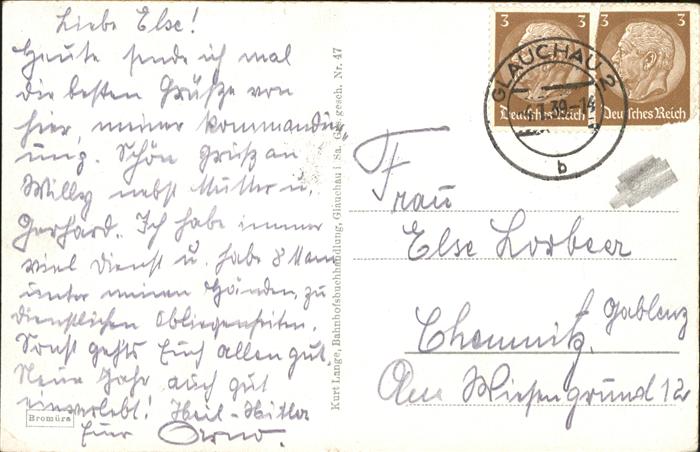 Liebe Else!
Heute sende ich mal
die besten Grüße von
hier, meiner Kommandier
ung. Schön Gruß an
Willy nebst Mutter u.
Gerhard. Ich habe immer
viel Dienst u. habe 8 Mann
unter meinen Händen, zu
dienstlichen Obliegenheiten.
Sonst geht's Euch allen gut.
Neue Jahr auch gut
eingelebt! Heil-Hitler
Euer
Bromüra
Kurt Lange, Bahnhofsbuchhandlung, Glauchau i Sa. Ges. gesch. Nr. 47
3 3
3
Deutsches Reich
Deutsches Reich
GLAUCHAU 2
.1.39.-14
b
Frau
Else Lorbeer
Chemnitz, Gablenz
Am Wiesengrund 12